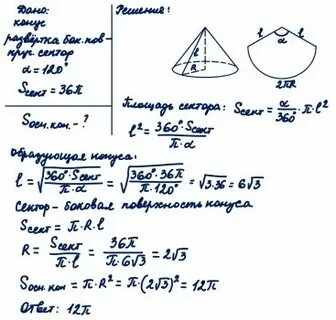 Дано:
конус
развёртка бок. пов-
круг. сектор
α = 120°
Sсект = 36π
Sосн.кон. - ?
Решение:
l
R
l
α
l
2πR
Площадь сектора: Sсект = α/360 · π · l²
l² = 360° · Sсект / π · α
Образующая конуса:
l = √(360° · Sсект / π · α) = √(360° · 36π / π · 120°) = √3·36 = 6√3
Сектор - боковая поверхность конуса
Sсект = π · R · l
R = Sсект / π · l = 36π / π · 6√3 = 2√3
Sосн.кон = π · R² = π · (2√3)² = 12π
Ответ: 12π